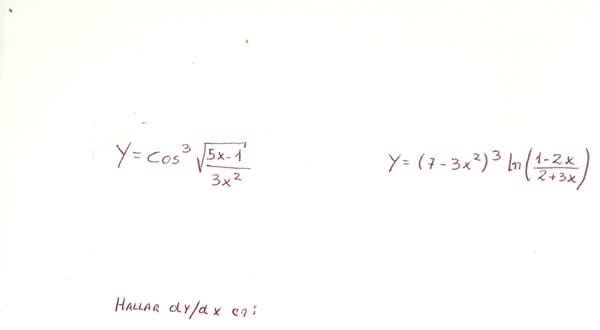 Y = cos³ √(5x-1) / 3x²
Y = (7 - 3x²)³ ln((1-2x)/(2+3x))
HALLAR dY/dx en: